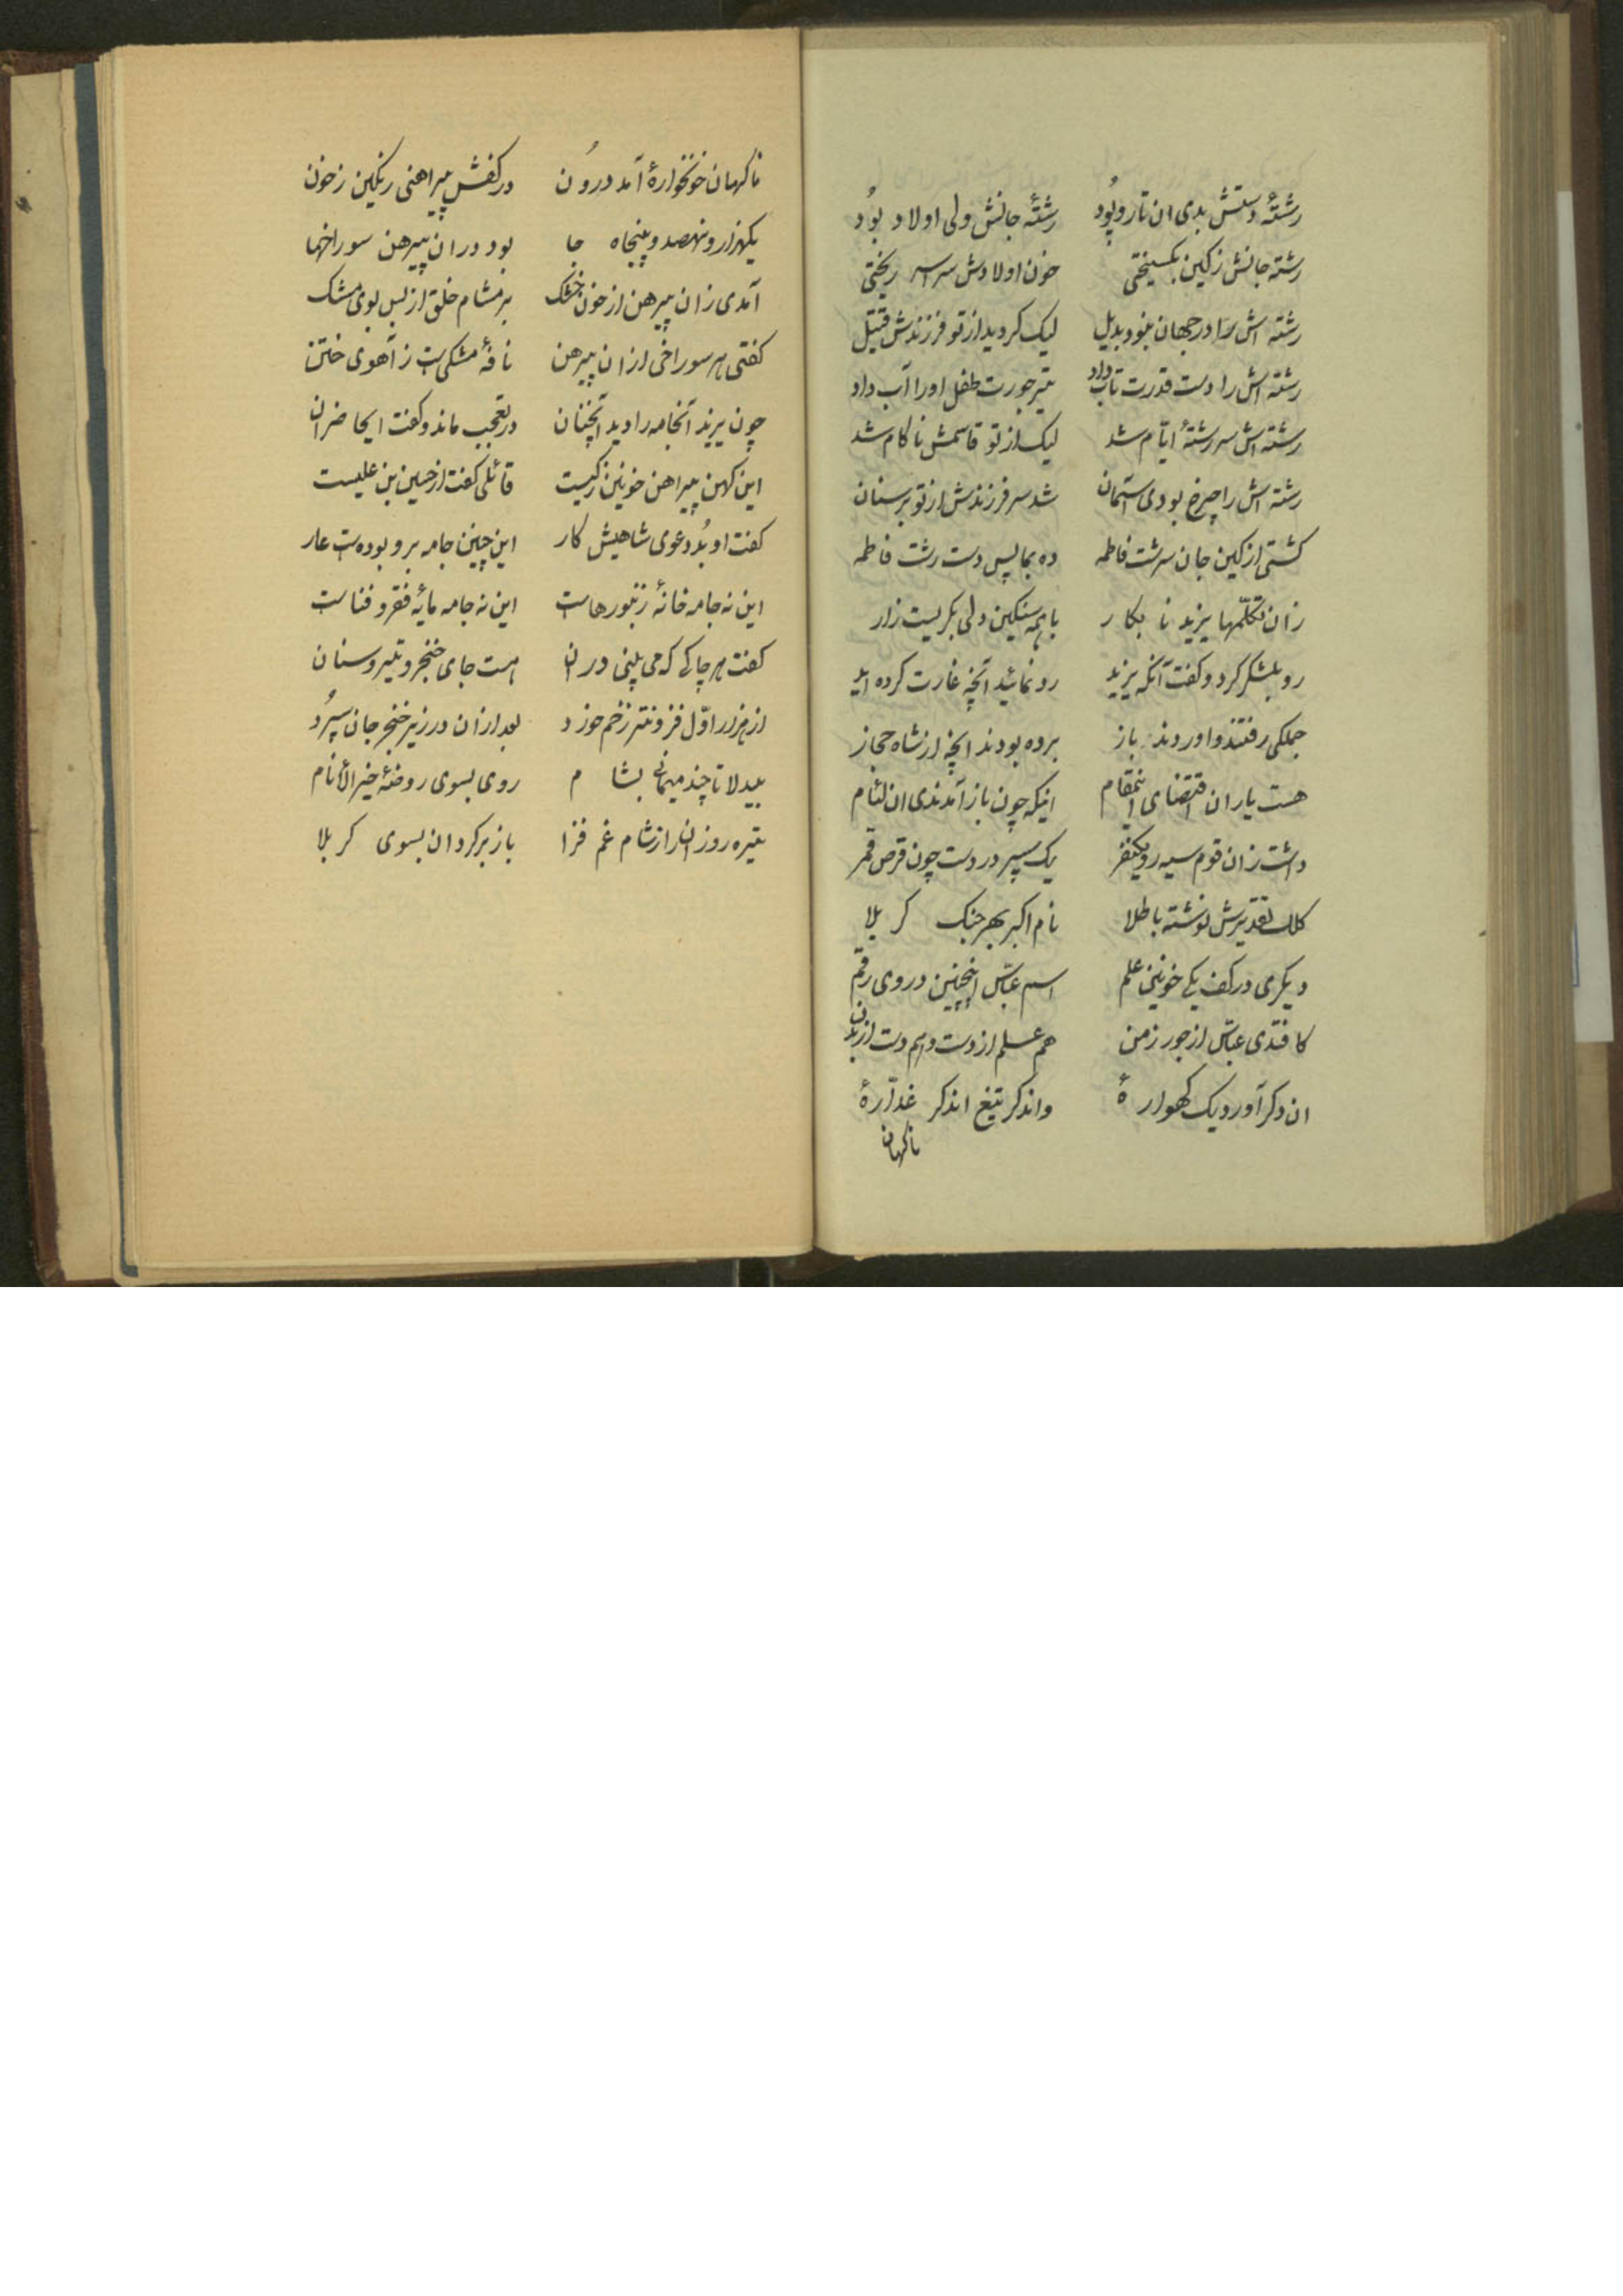 رشتهٔ دستش بدی ان تار و پُود رشتهٔ جانش ولی اولاد بوُد
رشته جانش زکین بکسیختی خون اولادش سراسر ریختی
رشته اش را در جهان بنود بدیل لیک کردید از تو فرزندش قتیل
رشته اش را دست قدرت تاب داد تیر جورت طفل او را آب داد
رشته اش سررشتهٔ ایّام شد لیک از تو قاسمش ناکام شد
رشته اش را چرخ بودی آسمان شد سر فرزندش از تو بر سنان
کشتی از کین جان سرشت فاطمه ده بما پس دست رشت فاطمه
زان تکلّمها یزید نابکار با همه سنکین دلی بکریست زار
رو بلشکر کرد و کفت آنکه یزید رو نمائید آنچه غارت کرده اید
جملکی رفتند و اوردند باز برده بودند انچه از شاه حجاز
هست یاران اقتضای انتقام اینکه چون باز آمدندی ان لئام
داشت زان قوم سیه رو یکنفر یک سپر در دست چون قرص قمر
کلک تقدیرش نوشته با طلا نام اکبر بهر جنک کربلا
دیکری در کف یکی خونین علم اسم عبّاس اینچنین در وی رقم
کافتدی عبّاس از جور زمن هم علم از دست و هم دست از بدن
ان دکر آورد یک کهوارهٔ واندکر تیغ اندکر غدّارهٔ
ناکهان
ناکهان خونخوارهٔ آمد درُون در کفش پیراهنی رنکین زخون
یکهزار و نهصد و پنجاه جا بود در ان پیرهن سوراخها
آمدی زان پیرهن از خون خشک بر مشام خلق از بس بوی مشک
کفتی هر سوراخی از ان پیرهن نافهٔ مشکی است ز آهوی ختن
چون یزید آنجامه را دید آنچنان در تعجب ماند و کفت ایحاضران
این کهن پیراهن خونین زکیست قائلی کفت از حسین بن علیست
کفت او بُد دعوی شاهیش کار این چنین جامه بر و بوده است عار
این نه جامه خانهٔ زنبورهاست این نه جامه مایهٔ فقر و فناست
کفت هر چاکی که می بینی در ان هست جای خنجر و تیر و سنان
از هزار اوّل فزونتر زخم خورد بعد از ان در زیر خنجر جان سپُرد
بیدلا تا چند میهمانی بشام روی بسوی روضهٔ خیر الأنام
تیره روزانرا از شام غم فزا باز برکردان بسوی کربلا